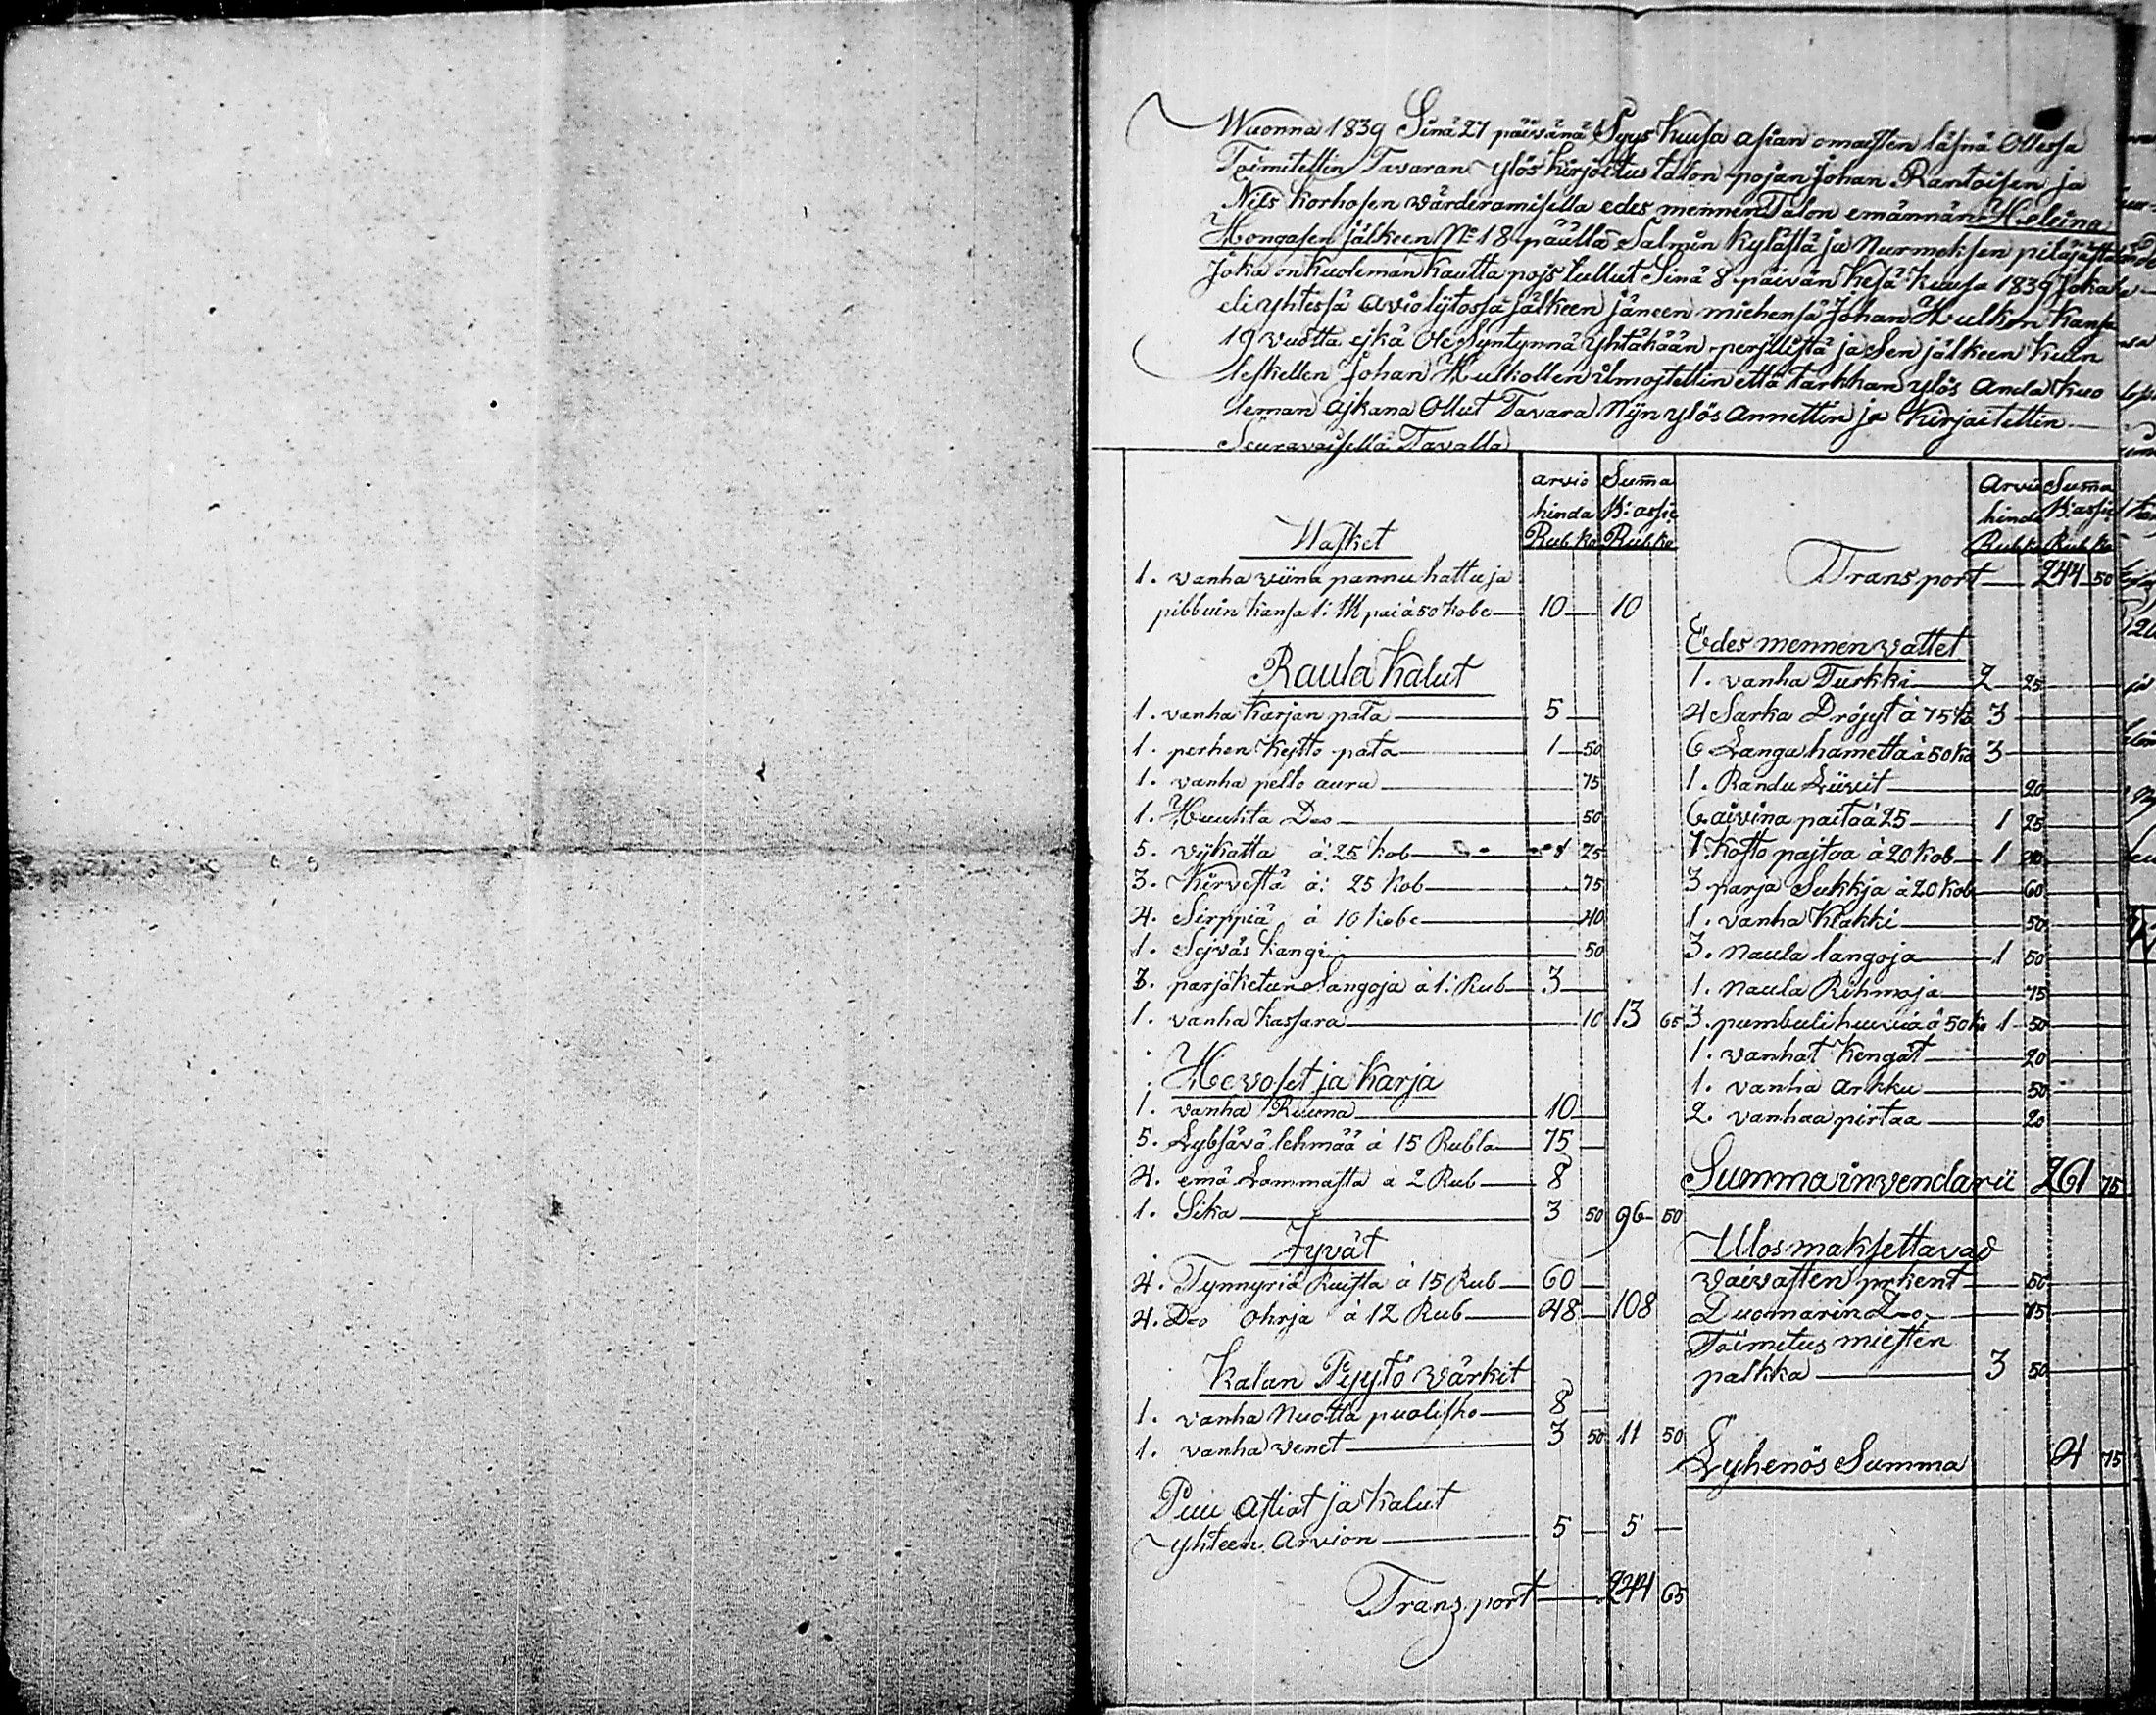 Wuonna 1839 Sinä 27 päivänä Syys Kuusa asian omaisten läsnä Ollessa
Toimitettin Tavaran ylös kirjoitus talon pojan Johan Rantoisen ja
Nils Korhosen värderamisella edes mennen Talon emännän Heleina
Hongasen jälkeen No 18 päällä Salmin Kylästä ja Nurmeksen pitäjästä
Joka on Kuoleman Kautta pojs tullut Sinä 8 päivän Kesä Kuusa 1839 Joka
eli yhtessä aviolijtossa jälkeen jäneen miehensä Johan Hulkon Kansa
19 vuotta ejkä Ole Syntynnä Yhtähään perjllistä ja Sen jälkeen Kuin
leskellen Johan Hulkollen ilmojtettin että tarkhan ylös Anda Kuo
leman Ajkana Ollut Tavara Nijn ylös Annettin ja Kirjoitettin
Seuravaisella Tavalla
arvio hinda Rub. Ko
Suma B: assig Rub Ko
Wasket
1. vanha viina pannu hattu ja
pibbuin Kansa 1: M pai à 50 Kobe 10 10
Rauta Kalut
1. vanha Karjan pata 5
1. perhen Kejtto pata 1 50
1. vanha pelto aura 75
1. Huuhta D=o 50
5. vijkatta à 25 Kob 1 25
3. Kirvestä à: 25 Kob 75
4. Sirppiä à 10 Kobe 40
1. Sejväs Kangi 50
3. parjöketun Sangoja à 1: Rub 3
1. vanha Kassara 10 13 65
Hevoset ja Karja
1. vanha Ruuna 10
5. Lybsävä lehmää à 15 Rubla 75
4. emä Lammasta à 2 Rub 8
1. Sika 3 50 96 50
Jyvät
4. Tynnyriä Ruista à 15 Rub 60
4. D=o Ohrja à 12 Rub 48 108
Kalan Pyytö värkit
1. vanha Nuotta puolisko 8
1. vanha venet 3 50 11 50
Puu Astiat ja Kalut
yhteen Arvion 5 5
Transport 244 65
Arvio hinda Rub. Ko
Suma B: assig Rub Ko
Transport 244 50
Edes mennen vattet
1. vanha Turkki 2 25
4 Sarka Dröjyt à 75 Ko 3
6 Langa hametta à 50 Ko 3
1. Randu Liivit 20
6 aivina paitaa 25 1 25
7. Kosto pajtaa à 20 Kob 1 20
3 parja Sukkja à 20 Kob 60
1. vanha Klakki 50
3. Naula langoja 1 50
1. Naula Rihmoja 75
3. pumbuli huivia à 50 Ko 1 50
1. vanhat Kengät 20
1. vanha Arkku 50
2. vanhaa pirtaa 20
Summa invendarii 261 75
Ulos maksettavad
Vaivasten prkent 50
Duomarin D=o 75
Toimitus miesten
palkka 3 50
Lyhenös Summa 4 75